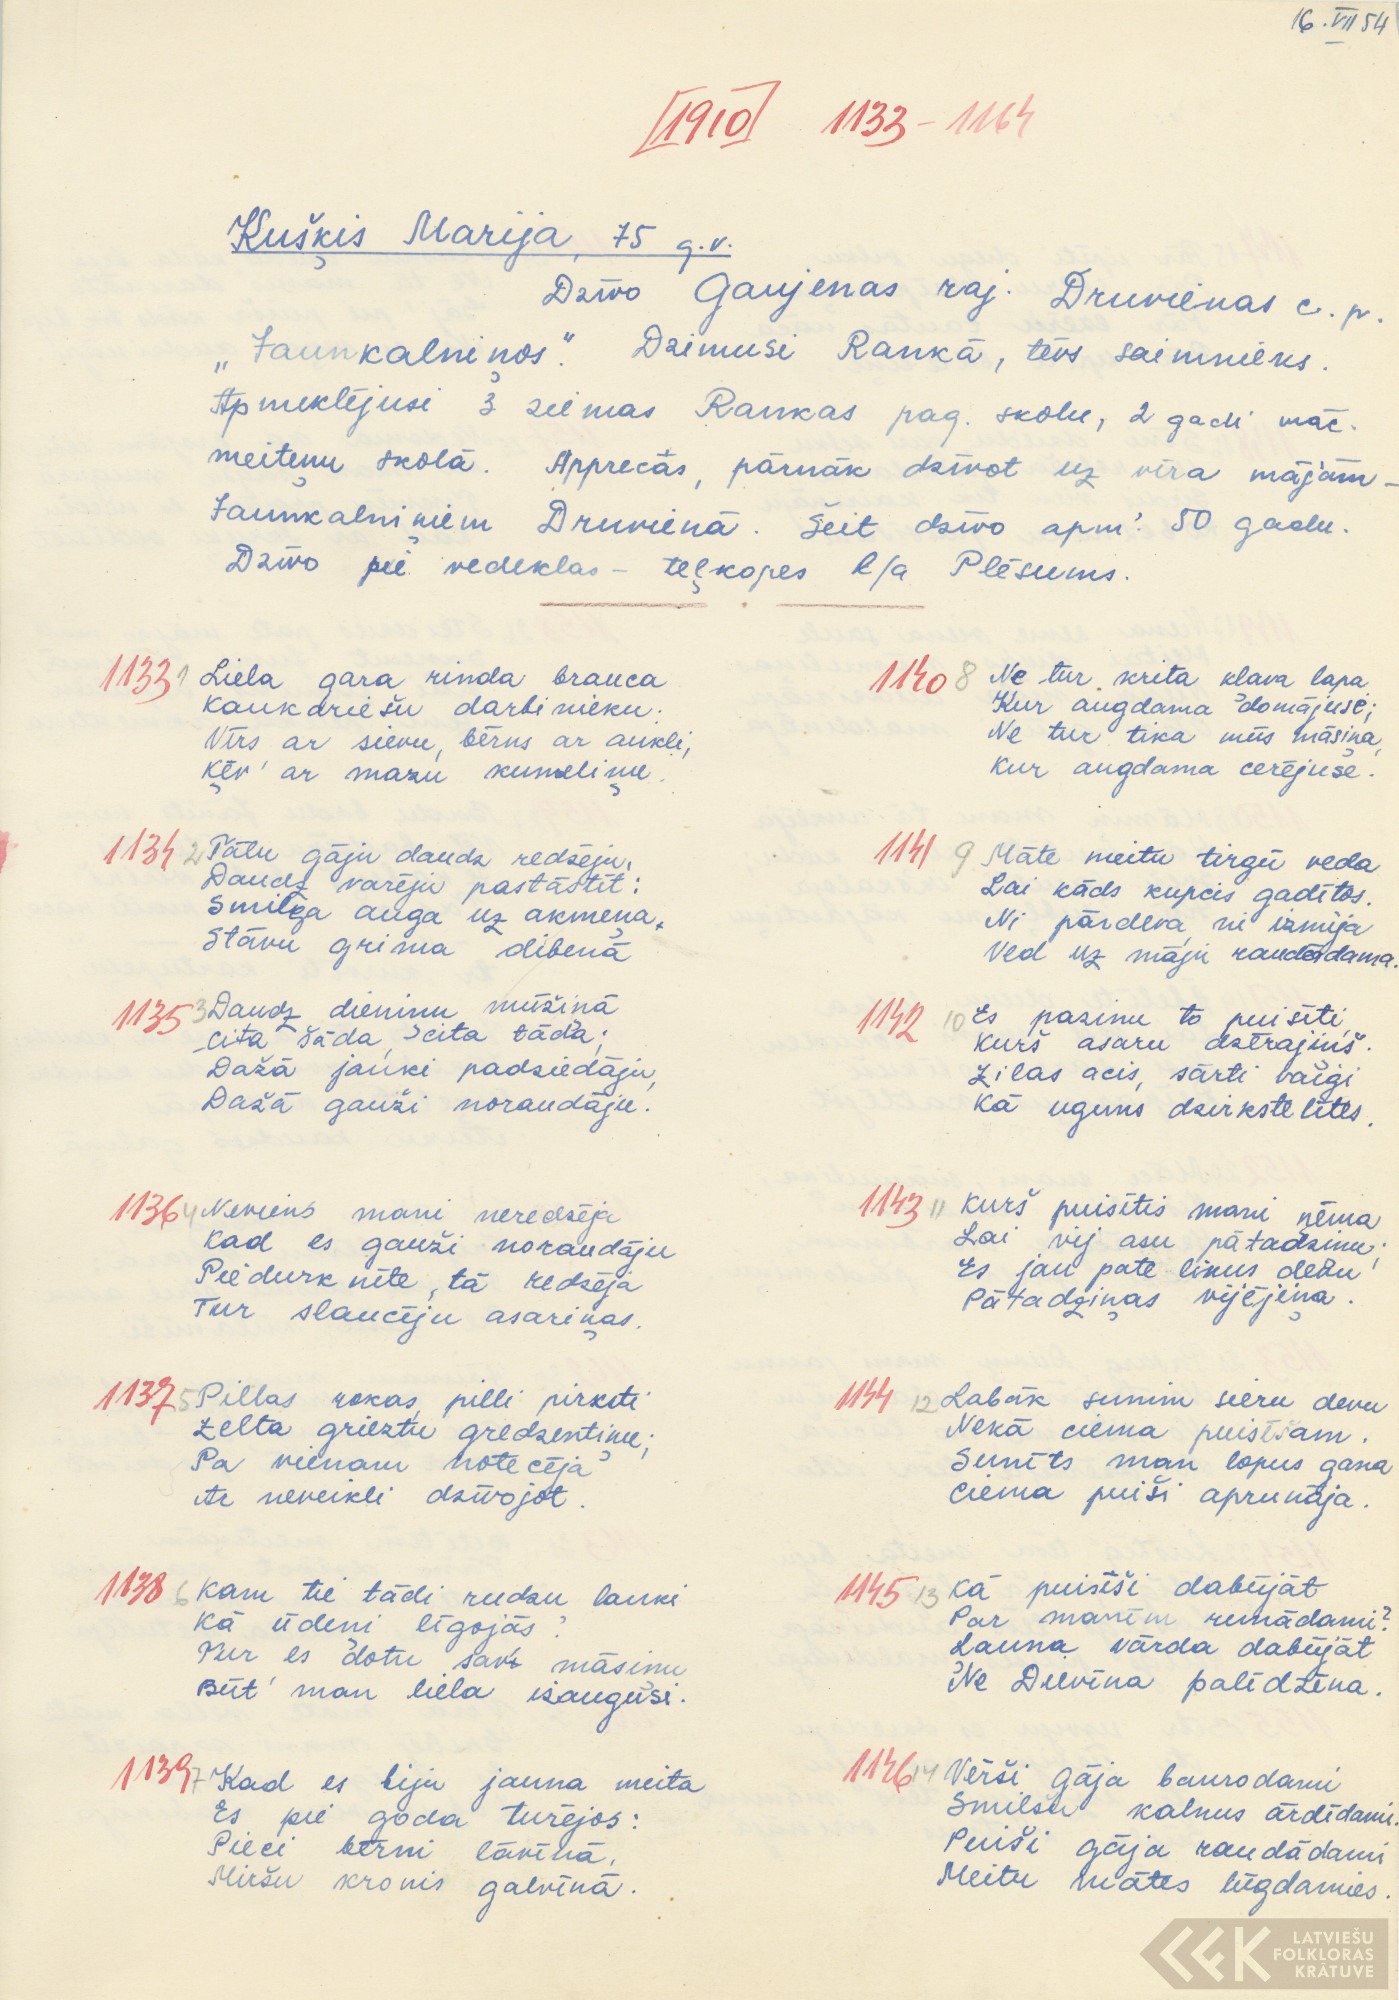 16.VII 54
[1910] 1133-1164
Kušķis Marija, 75 g.v.
Dzīvo Gaujenas raj. Druvienas c.p.
„Jaunkalniņos". Dzimusi Rankā, tēvs saimnieks.
Apmeklējusi 3 ziemas Rankas pag. skolu, 2 gadi māc.
meiteņu skolā. Apprecās, pārnāk dzīvot uz vīra mājām -
Jaunkalniņiem Druvienā. Šeit dzīvo apm. 50 gadu.
Dzīvo pie vedeklas - teļkopes k/a Plēsums.
1133 1 Liela gara rinda brauca
Kaukāriešu darbinieku:
Vīrs ar sievu, bērns ar aukli,
Ķēv' ar mazu kumeliņu.
1134 2 Tālu gāju daudz redzēju,
Daudz varēju pastāstīt:
Smilga auga uz akmeņa,
Stāvu grima dibenā
1135 3 Daudz dieniņu mūžiņā
Cita šāda, cita tāda;
Dažā jauki padziedāju,
Dažā gauži noraudāju.
1136 4 Neviens mani neredzēja
Kad es gauži noraudāju
Piedurknīte, tā redzēja
Tur slaucīju asariņas.
1137 5 Pillas rokas, pilli pirksti
Zelta grieztu gredzentiņu;
Pa vienam notecēja
Ar neveikli dzīvojot.
1138 6 Kam tie tādi rudzu lauki
Kā ūdeņi līgojās?
Kur es dotu savu māsiņu
Būt' man liela izaugusi.
1139 7 Kad es biju jauna meita
Es pie goda turējos:
Pieci bērni lāvīnā,
Miršu kronis galvīnā.
1140 8 Ne tur krita kļava lapa
Kur augdama domājuse;
Ne tur tika mūs māsiņa,
Kur augdama cerējuse.
1141 9 Māte meitu tirgū veda
Lai kāds kupcis gadītos.
Ni pārdeva, ni izmija
Ved uz māju raudādama.
1142 10 Es pazinu to puisīti,
Kurš asaru dzērajiņš.
Zilas acis, sārti vaigi
Kā uguns dzirkstelītes.
1143 11 Kurš puisītis mani ņēma
Lai vij asu pātadziņu;
Es jau pate linus devu
Pātadziņas vijējiņa.
1144 12 Labāk sunim sieru devu
Nekā ciema puisīšam.
Sunīts man lopus gana
Ciema puiši aprunāja.
1145 13 Kā puisīši dabūjāt
Par manīm runādami?
Launa vārda dabūjāt
Ne Dievīna palīdzēna.
1146 14 Vērši gāja baurodami
Smilšu kalnus ārdīdami.
Puiši gāja raudādami
Meitu mātes lūgdamies.
LATVIEŠU
FOLKLORAS
KRĀTUVE